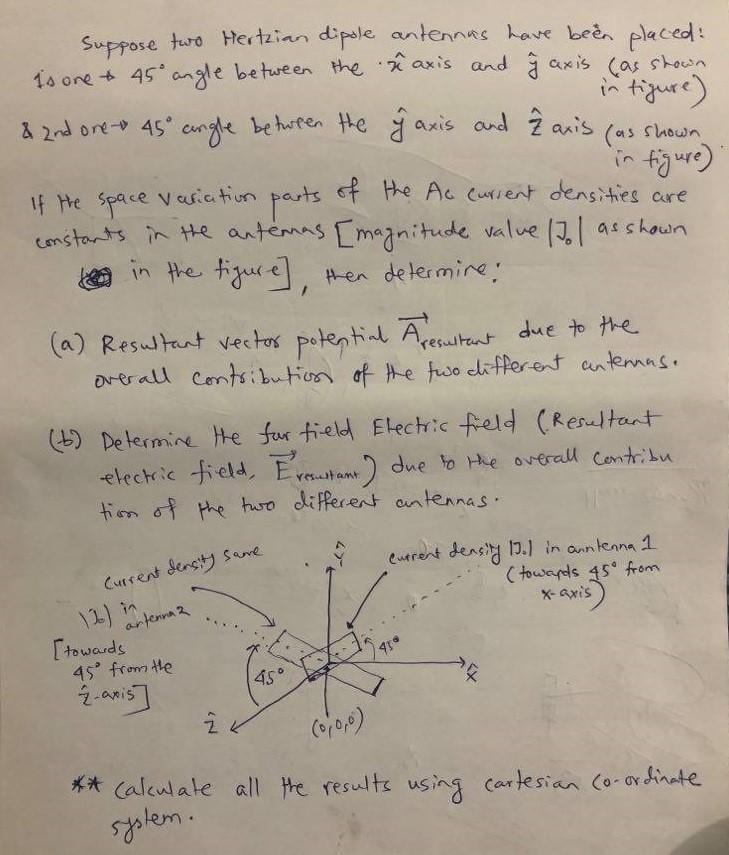 Suppose two Hertzian dipole antennas have been placed:
1s one → 45° angle between the x̂ axis and ŷ axis (as shown
in figure)
& 2nd one → 45° angle between the ŷ axis and ẑ axis (as shown
in figure)
If the space variation parts of the AC current densities are
constants in the antennas [magnitude value |J₀| as shown
in the figure], then determine:
(a) Resultant vector potential A⃗resultant due to the
overall contribution of the two different antennas.
(b) Determine the far field Electric field (Resultant
electric field, E⃗resultant) due to the overall contribu
tion of the two different antennas.
Current density same
|J₀| in
antenna 2
[towards
45° from the
ẑ-axis]
Ŷ
current density |J₀| in anntenna 1
(towards 45° from
x-axis)
45°
45°
X̂
Ẑ
(0,0,0)
** Calculate all the results using cartesian co-ordinate
system.